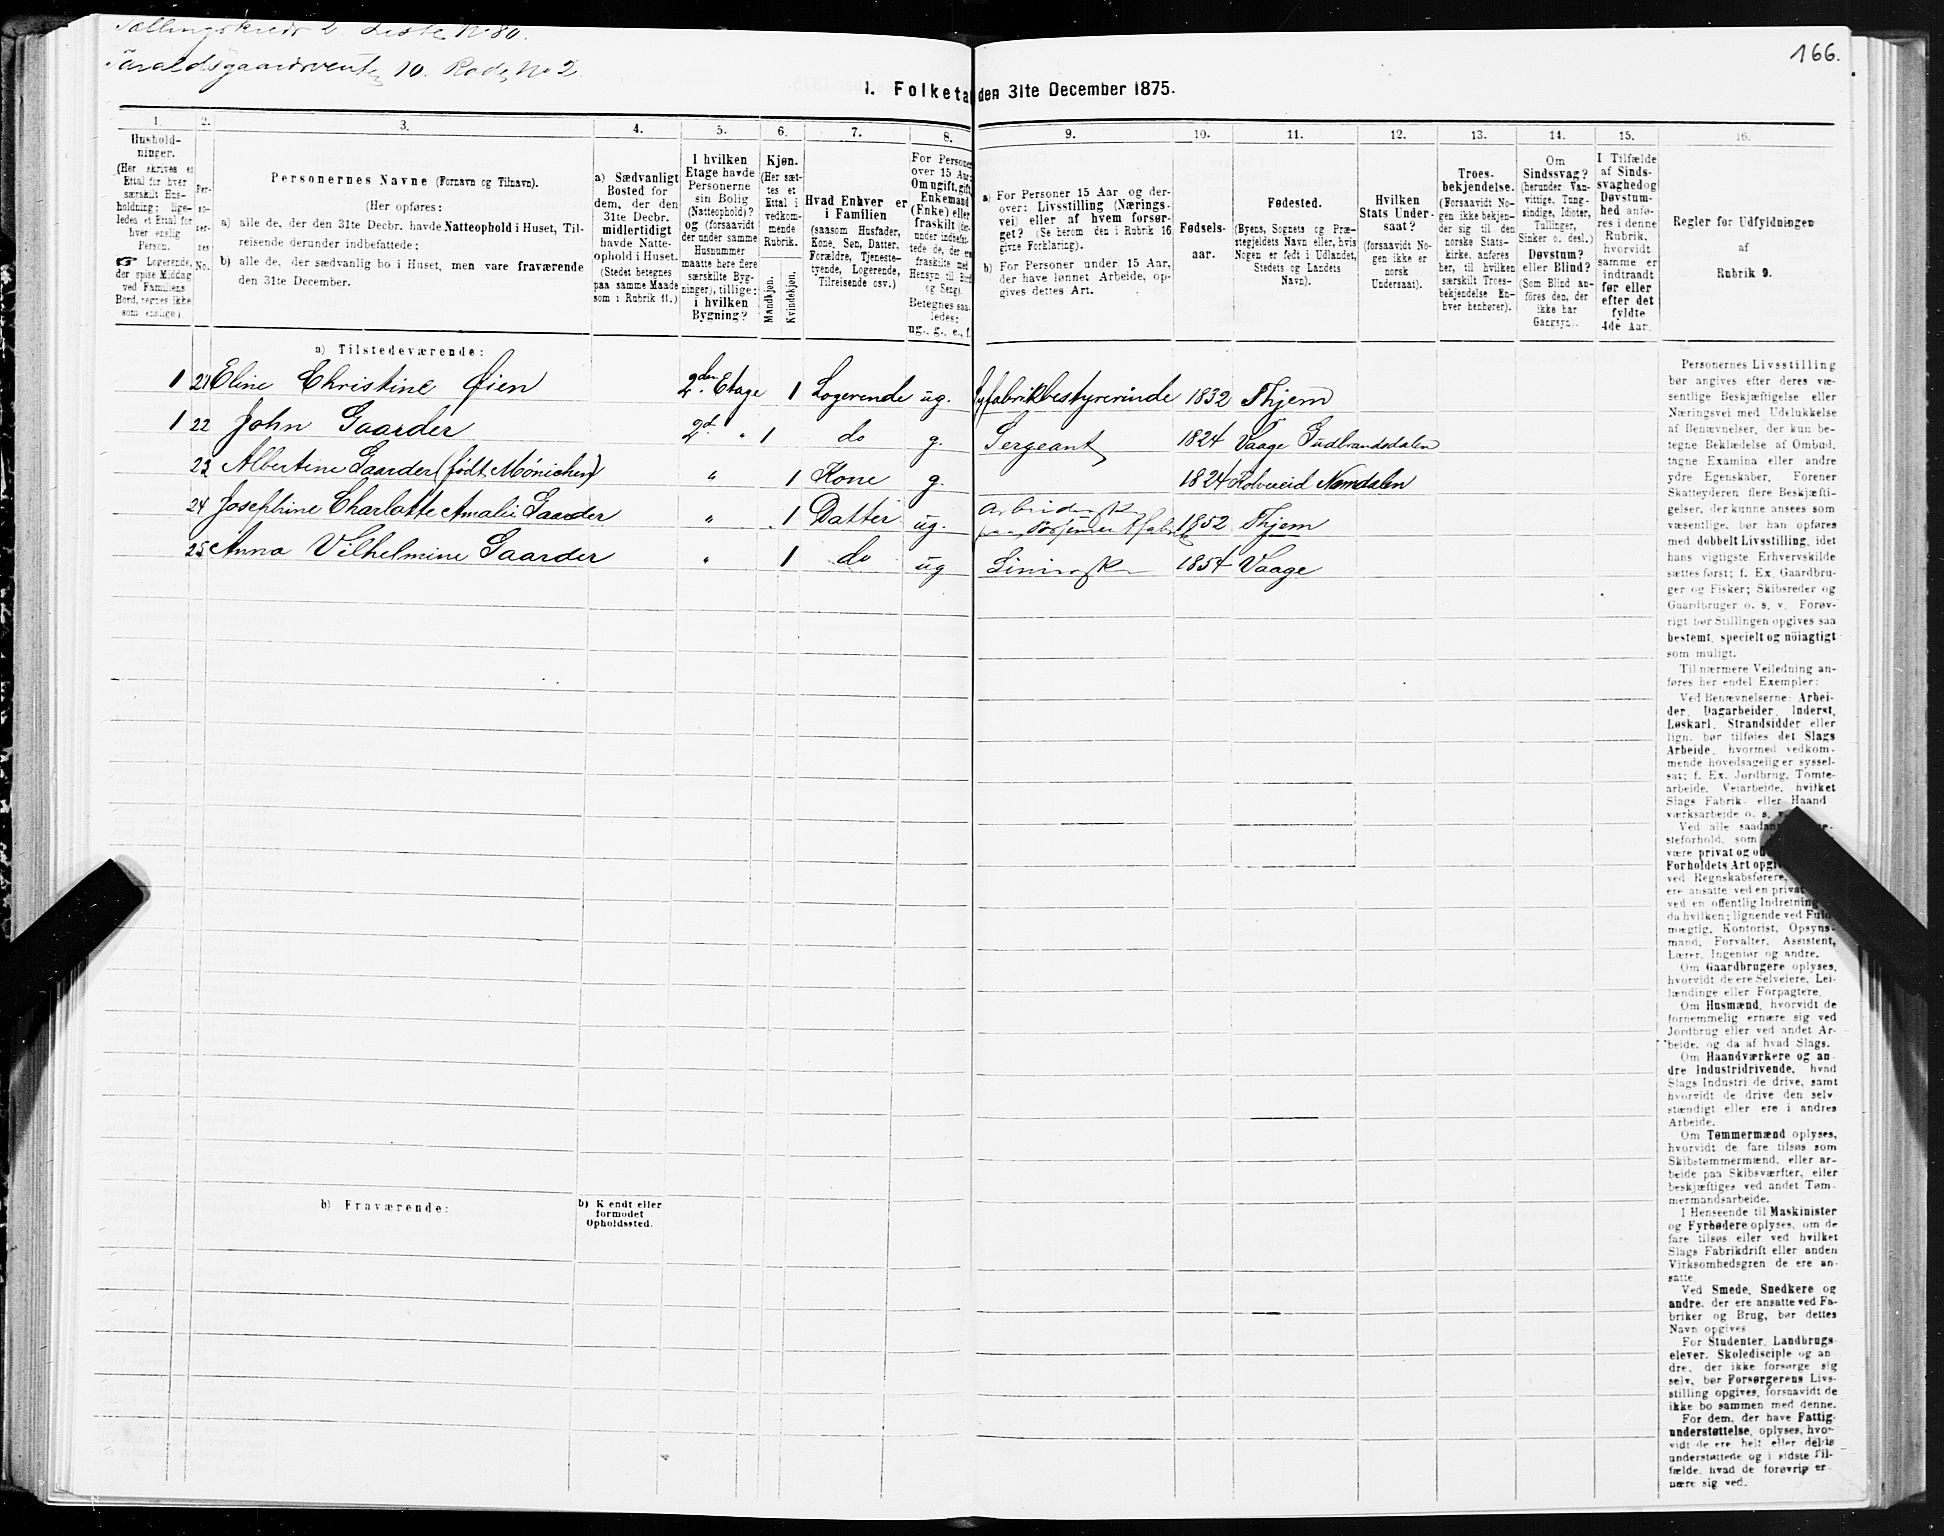 Tællingskreds 2. Liste No 80.
Taraldsgaardsveiten 10. Rode No 2
166.
1. Folketal den 31te December 1875.
1. 2. 3. 4. 5. 6. 7. 8. 9. 10. 11. 12. 13. 14. 15. 16.
Hushold-
ninger.
(Her skrives et
Ettal for hver
særskilt Hus-
holdning; lige-
ledes et Ettal for
hver enslig
Person.
☛ Logerende,
der spise Middag
ved Familiens
Bord, regnes ikke
som enslige).
Per-
so-
ner-
nes
No.
Personernes Navne (Fornavn og Tilnavn).
(Her opføres:
a) alle de, der den 31te Decbr. havde Natteophold i Huset, Til-
reisende derunder indbefattede;
b) alle de, der sædvanlig bo i Huset, men vare fraværende
den 31te December.
a) Sædvanligt
Bosted for
dem, der den
31te Decbr.
midlertidigt
havde Natte-
ophold i Huset.
(Stedet betegnes
paa samme Maade
som i Rubrik 11.)
I hvilken
Etage havde
Personerne
sin Bolig
(Natteophold)?
og (forsaavidt
der under samme
Husnummer
maatte høre flere
særskilte Byg-
ninger), tillige:
i hvilken
Bygning?
Kjøn.
(Her sæt-
tes et
Ettal i
vedkom-
mende
Rubrik.
Mandkjøn.
Kvindekjøn.
Hvad Enhver er
i Familien
(saasom Husfader,
Kone, Søn, Datter,
Forældre, Tjeneste-
tyende, Logerende,
Tilreisende osv.)
For Personer
over 15 Aar:
Om ugift, gift,
Enkemand
(Enke) eller
fraskilt (der-
under indbefat-
tede de, der ere
fraskilte med
Hensyn til Bord
og Seng).
Betegnes saa-
ledes:
ug., g., e., f.
a) For Personer 15 Aar og der-
over: Livsstilling (Nærings-
vei) eller af hvem forsør-
get? (Se herom den i Rubrik 16
givne Forklaring).
b) For Personer under 15 Aar,
der have lønnet Arbeide, op-
gives dettes Art.
Fødsels-
aar.
Fødested.
(Byens, Sognets og Præ-
stegjeldets Navn eller, hvis
Nogen er født i Udlandet,
Stedets og Landets
Navn).
Hvilken
Stats Under-
saat?
(forsaavidt No-
gen ikke er
norsk
Undersaat).
Troes-
bekjendelse.
(Forsaavidt No-
gen ikke bekjen-
der sig til den
norske Stats-
kirke, anføres
her, til hvilken
særskilt Troes-
bekjendelse En-
hver henhører).
Om
Sindssvag?
(herunder Van-
vittige, Tung-
sindige, Idioter,
Tullinger,
Sinker o. desl.)
Døvstum?
eller Blind?
(Som Blind an-
føres den, der
ikke har
Gangsyn).
I Tilfælde
af Sinds-
svaghed og
Døvstum-
hed anfø-
res i denne
Rubrik,
hvorvidt
samme er
indtraadt
før eller
efter det
fyldte
4de Aar.
Regler for Udfyldningen
af
Rubrik 9.
a) Tilstedeværende:
1 21 Eline Christine Øien 2den Etage 1 Logerende ug. Fabrikbestyrerinde 1832 Thjem
1 22 John Gaarder 2d " 1 do g. Sergeant 1824 Vaage Gudbrandsdalen
23 Albertine Gaarder (født Mónichen) " 1 Kone g. 1824 Kolvereid Namdalen
24 Josephine Charlotte Amalie Gaarder " 1 Datter ug. Arbeiderske 1852 Thjem
25 Anna Vilhelmine Gaarder " 1 do ug 1854 Vaage
b) Fraværende:
b) Kjendt eller
formodet
Opholdssted.
Personernes Livsstilling
bør angives efter deres væ-
sentlige Beskjæftigelse eller
Næringsvei med Udelukkelse
af Benævnelser, der kun be-
tegne Beklædelse af Ombud,
tagne Examina eller andre
ydre Egenskaber. Forener
Skatteyderen flere Beskjæfti-
gelser, der kunne ansees som
væsentlige, bør han opføres
med dobbelt Livsstilling, idet
hans vigtigste Erhvervskilde
sættes først; f. Ex. Gaardbru-
ger og Fisker; Skibsreder og
Gaardbruger o. s. v. Forøv-
rigt bør Stillingen opgives saa
bestemt, specielt og nöiagtigt
som muligt.
Til nærmere Veiledning an-
føres her endel Exempler:
Ved Benævnelserne: Arbei-
der, Dagarbeider, Inderst,
Løskarl, Strandsidder eller
lign. bør tilføies det Slags
Arbeide, hvormed vedkom-
mende hovedsagelig er syssel-
sat; f. Ex. Jordbrug, Tomte-
arbeide, Veiarbeide, hvilket
Slags Fabrik- eller Haand-
værksarbeide o. s. v.
Ved alle saadanne
steforhold, som
være privat og
Forholdets Art
ved Regnskabsførere,
ere ansatte ved en privat
ved en offentlig Indretning
da hvilken; lignende ved Fuld-
mægtig, Kontorist, Opsyns-
mand, Forvalter, Assistent,
Lærer, Ingeniør og andre.
Om Gaardbrugere oplyses,
hvorvidt de ere Selveiere, Lei-
lændinge eller Forpagtere.
Om Husmænd, hvorvidt de
fornemmelig ernære sig ved
Jordbrug eller ved andet Ar-
beide, og da af hvad Slags.
Om Haandværkere og an-
dre Industridrivende, hvad
Slags Industri de drive, samt
hvorvidt de drive den selv-
stændigt eller ere i andres
Arbeide.
Om Tømmermænd oplyses,
hvorvidt de fare tilsøs som
Skibstømmermænd, eller ar-
beide paa Skibsværfter, eller
beskjæftiges ved andet Tøm-
mermandsarbeide.
I Henseende til Maskinister
og Fyrbødere oplyses, om de
fare tilsøs eller ved hvilket
Slags Fabrikdrift eller anden
Virksomhedsgren de ere an-
satte.
Ved Smede, Snedkere og
andre, der ere ansatte ved Fa-
briker og Brug, bør dettes
Navn opgives
For Studenter, Landbrugs-
elever, Skoledisciple og an-
dre, der ikke forsørge sig
selv, bør Forsørgerens Livs-
stilling opgives, forsaavidt de
ikke bo sammen med denne.
For dem, der have Fattig-
understøttelse, oplyses, hvor-
vidt de ere helt eller delvis
understøttede og i sidste Til-
fælde, hvad de forøvrig er-
nære sig ved.